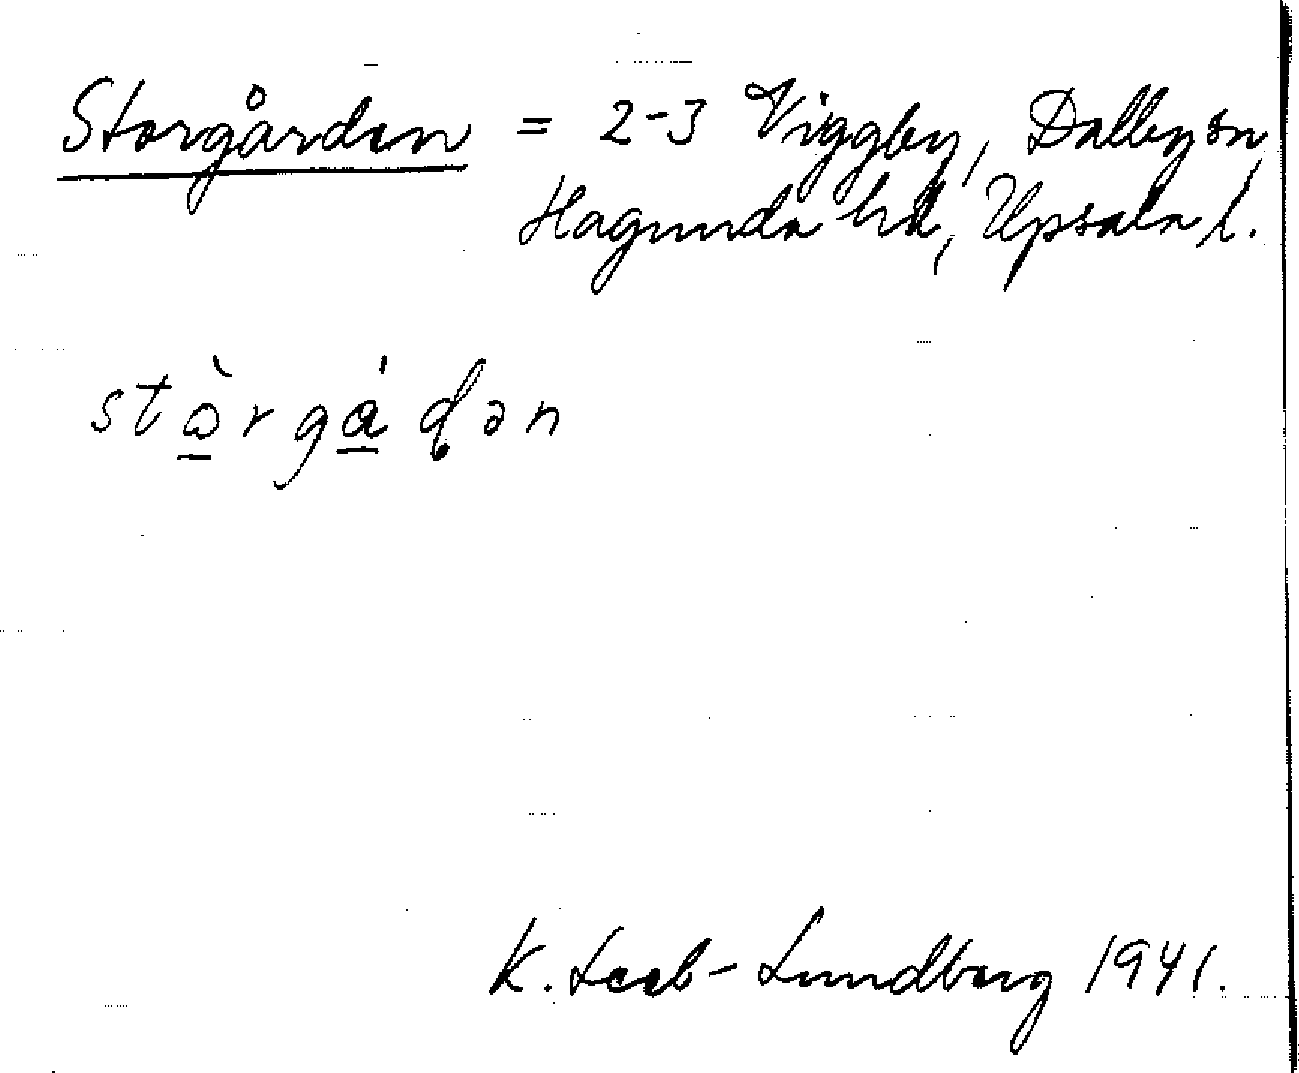 Storgården = 2-3 Viggby, Dalby sn,
Hagunda hd, Upsala l.
stòrgá́dən
K. Leeb-Lundberg 1941.